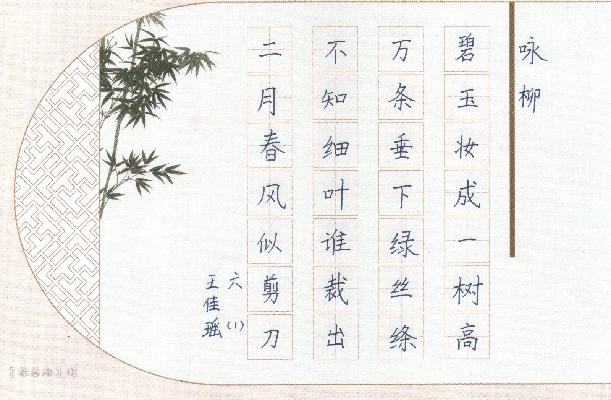 咏柳
碧玉妆成一树高
万条垂下绿丝绦
不知细叶谁裁出
二月春风似剪刀
六(1)
王佳瑶